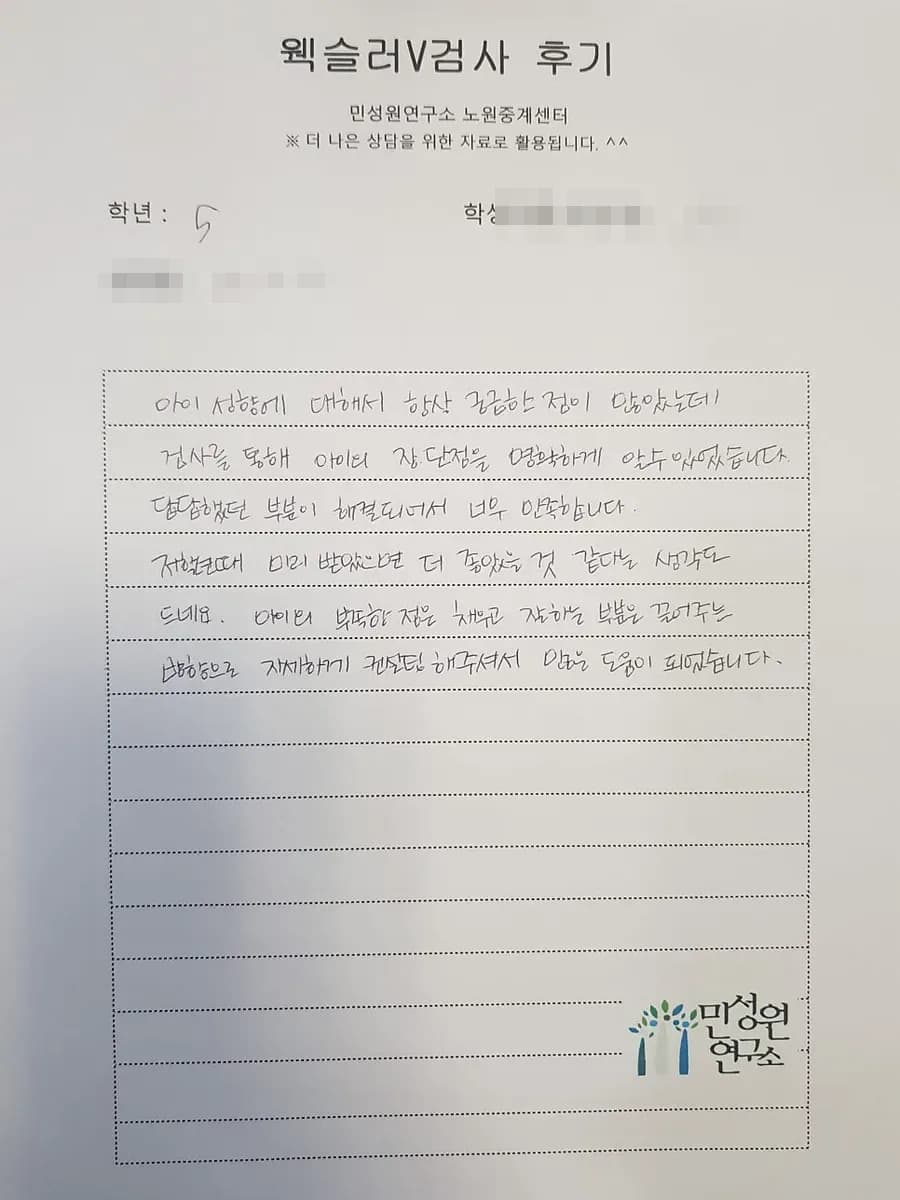 웩슬러V검사 후기
민성원연구소 노원중계센터
※ 더 나은 상담을 위한 자료로 활용됩니다. ^^
학년 : 5
아이 성향에 대해서 항상 궁금한 점이 많았는데
검사를 통해 아이의 장.단점을 명확하게 알수있었습니다.
답답했던 부분이 해결되어서 너무 만족합니다.
저학년때 미리 받았으면 더 좋았을 것 같다는 생각도
드네요. 아이의 부족한 점은 채우고 잘하는 부분은 끌어주는
방향으로 자세하게 컨설팅해주셔서 많은 도움이 되었습니다.
민성원
연구소